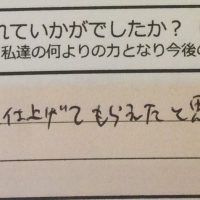 れていかがでしたか？
私達の何よりの力となり今後の
仕上げてもらえたと思